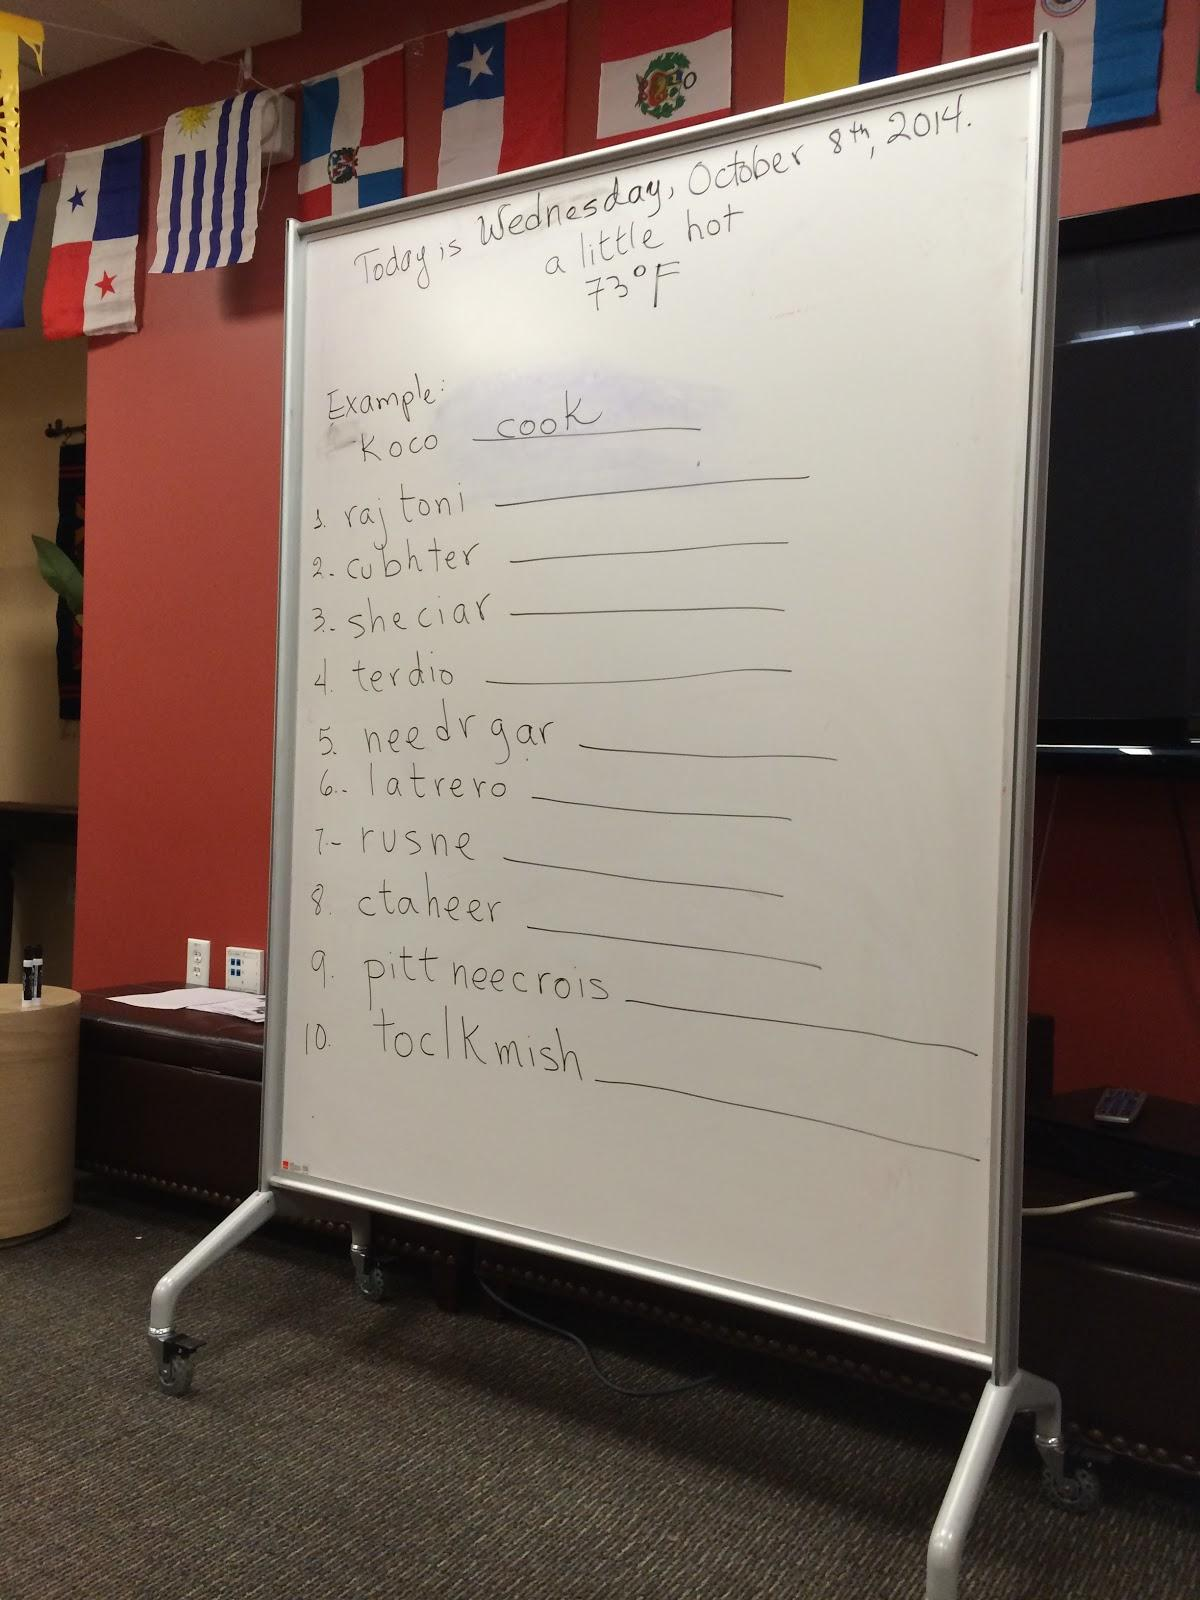 Today is Wednesday, October 8th, 2014.
a little hot
73°F
Example:
Koco cook
1. raj toni
2.- cubhter
3.- sheciar
4. terdio
5. needrgar
6.- latrero
7.- rusne
8. ctaheer
9. pittneecrois
10. toclkmish